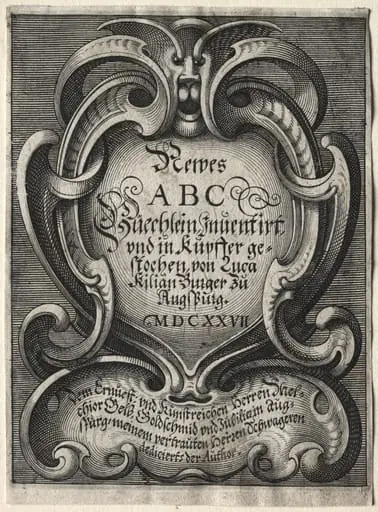 Newes
ABC
Büechlein Inuentirt
vnd in Kupffer ge-
stochen, von Luca
Kilian Burger zu
Augspurg.
MDCXXVII
Dem Ernuest vnd Kunstreichen Herren Mel-
chior Gelb Goldschmid vnd Jubilir in Aug-
spurg meinem vertrauten Herren Schwageren
dedicierts der Author.